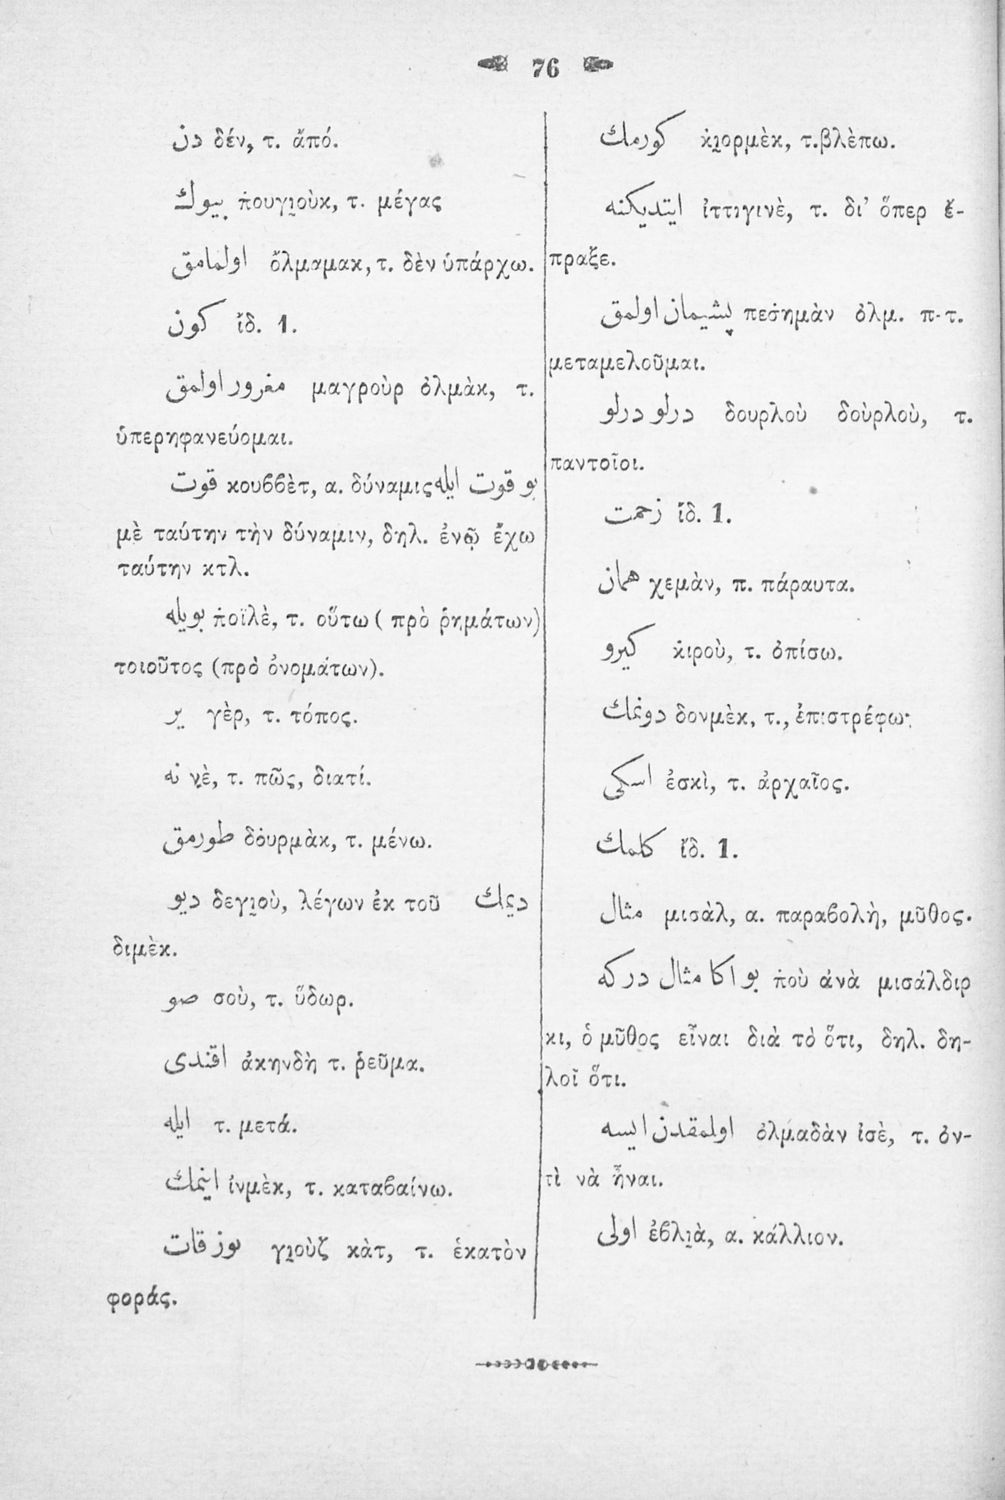 76
دن δέν, τ. ἄπό.
بيوك ṗουγι̯οὺκ, τ. μέγας
اولمامق ὄλμαμακ, τ. δὲν ὑπάρχω.
كون ἴδ. 1.
مغرور اولمق μαγροὺρ ὀλμὰκ, τ.
ὑπερηφανεύομαι.
قوت κουϐϐὲτ, α. δύναμις بو قوت ايله
μὲ ταύτην τὴν δύναμιν, δηλ. ἐνῷ ἔχω
ταύτην κτλ.
بويله ṗοϊλὲ, τ. οὕτω ( πρὸ ῥημάτων)
τοιοῦτος (πρὸ ὀνομάτων).
ير γὲρ, τ. τόπος.
نه νὲ, τ. πῶς, διατί.
طورمق δὀυρμὰκ, τ. μένω.
ديو δεγι̯οὺ, λέγων ἐκ τοῦ ديمك
διμὲκ.
صو σοὺ, τ. ὕδωρ.
اقندى ἀκηνδὴ τ. ῥεῦμα.
ايله τ. μετά.
اينمك ἰνμὲκ, τ. καταϐαίνω.
يوز قات γι̯οὺζ κὰτ, τ. ἑκατὸν
φοράς.
كورمك κ̇ι̯ορμὲκ, τ.βλὲπω.
ايتديكنه ἰττιγινὲ, τ. δι’ ὅπερ ἔ-
πραξε.
پشيمان اولمق πεσ̇ημὰν ὀλμ. π-τ.
μεταμελοῦμαι.
درلو درلو δουρλοὺ δοὺρλοὺ, τ.
παντοῖοι.
زحمت ἴδ. 1.
همان χεμὰν, π. πάραυτα.
كيرو κ̇ιροὺ, τ. ὀπίσω.
دونمك δονμὲκ, τ., ἐπιστρέφω·
اسكى ἐσκὶ, τ. ἀρχαῖος.
كلمك ἴδ. 1.
مثال μισὰλ, α. παραϐολὴ, μῦθος.
بو اكا مثال در كه ṗοὺ ἀνὰ μισάλδιρ
κι, ὁ μῦθος εἶναι διὰ τὸ ὅτι, δηλ. δη-
λοῖ ὅτι.
اولمقدن ايسه ὀλμαδὰν ἰσὲ, τ. ὀν-
τὶ νὰ ἦναι.
اولى ἐϐλι̯ὰ, α. κάλλιον.